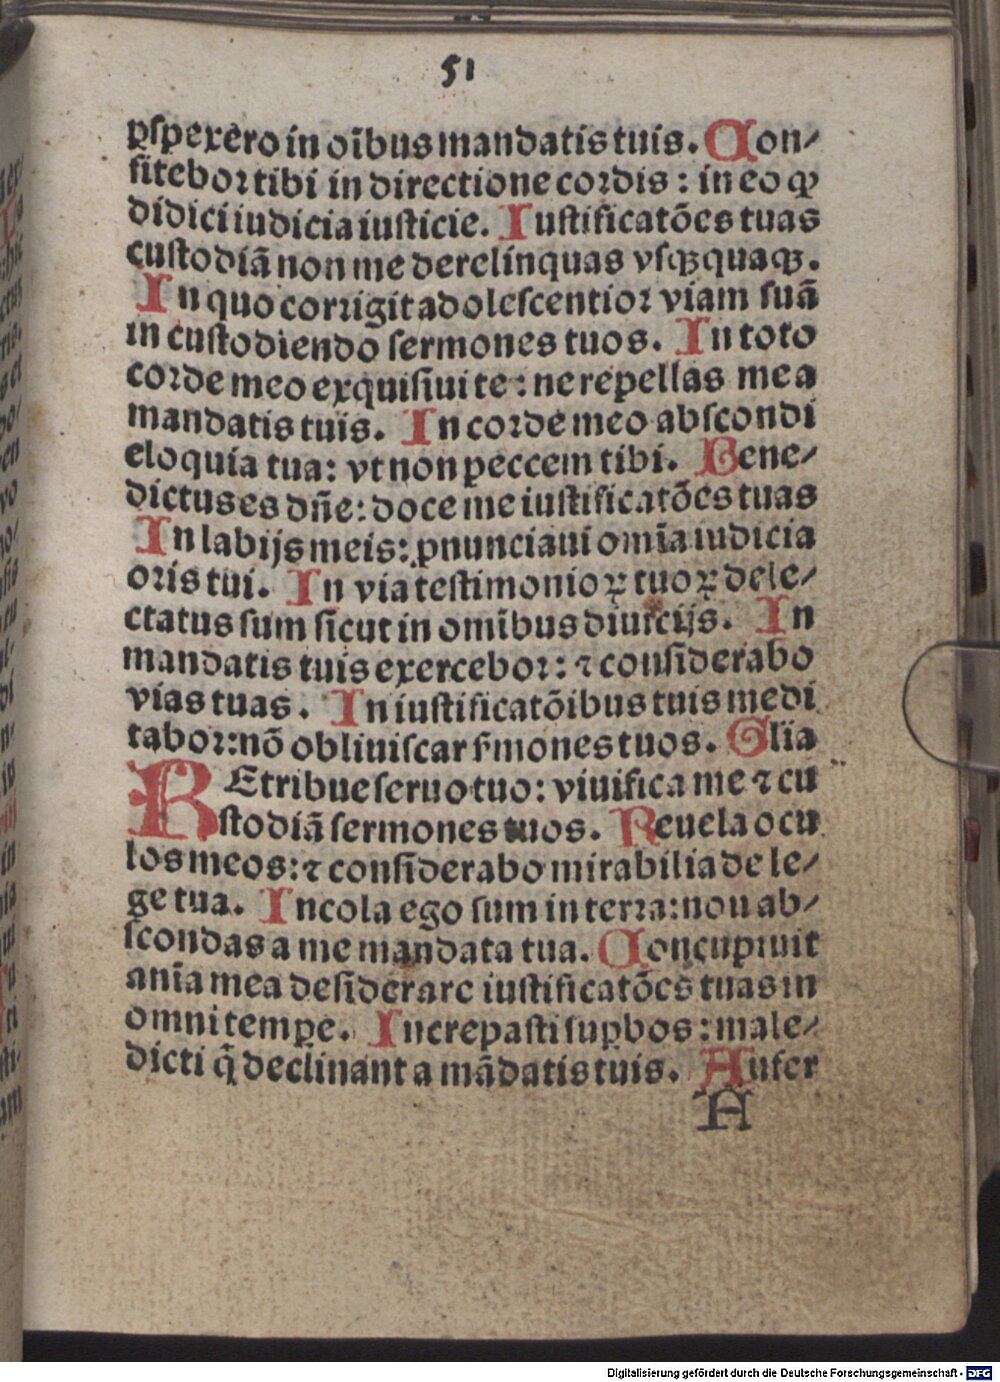 51
ꝑſpexero in oı̄bus mandatis tuis. Con⸗
fitebor tibi in directione cordis : in eo ꝙ
didici iudicia iuſticie. Iuſtificatōes tuas
cuſtodiā non me derelinquas vſqꝫquaqꝫ.
In quo corrigit adoleſcentior viam ſuā
in cuſtodiendo ſermones tuos. In toto
corde meo exquiſiui te : ne repellas me a
mandatis tuis. In corde meo abſcondi
eloquia tua: vt non peccem tibi. Bene⸗
dictus es dn̄e: doce me iuſtificatōes tuas
In labijs meis: ꝓnunciaui omı̄a iudicia
oris tui. In via teſtimonioꝝ tuoꝝ dele⸗
ctatus ſum ſicut in omı̄bus diuicijs. In
mandatis tuis exercebor: ⁊ conſiderabo
vias tuas. In iuſtificatōibus tuis medi
tabor:nō obliuiſcar ẜmones tuos. Glia
REtribue ſeruo tuo: viuifica me ⁊ cu
ſtodiā ſermones tuos. Reuela ocu
los meos:⁊ conſiderabo mirabilia de le⸗
ge tua. Incola ego ſum in terra:non ab⸗
ſcondas a me mandata tua. Concupiuit
anı̄a mea deſiderare iuſtificatōes tuas in
omni tempꝑe. Increpaſti ſuꝑbos :male⸗
dicti q̄ declinant a mādatis tuis. Aufer
A
Digitalisierung gefördert durch die Deutsche Forschungsgemeinschaft - DFG